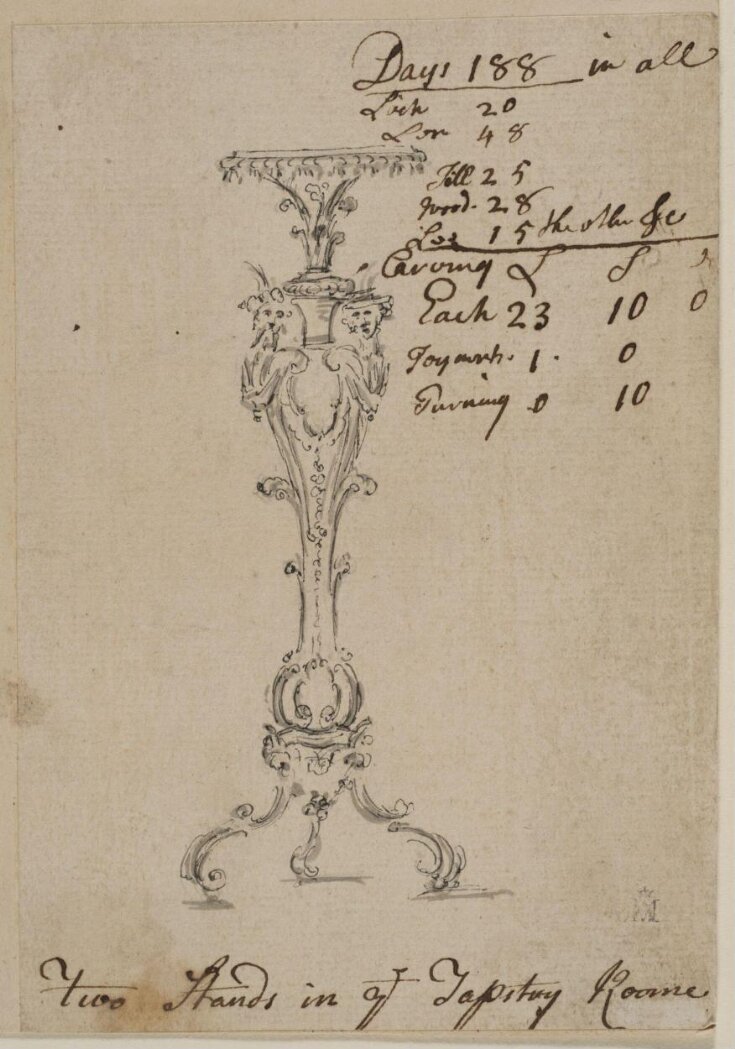 Days 188 in all
Lock 20
Lon 48
Till 25
Wood. 28
Loc 15 the other &c
Carving L S
Each 23 10 0
Joynwrk. 1. 0
Turning 0 10
Two Stands in yᵉ Tapstry Roome